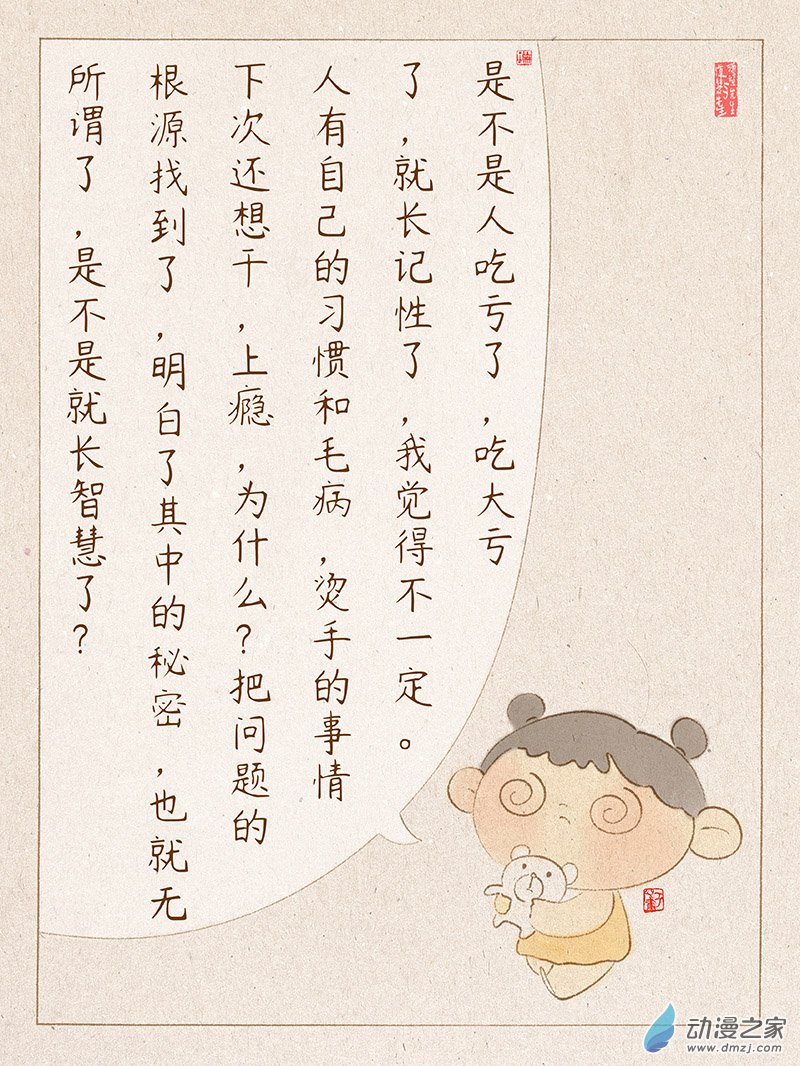 是不是人吃亏了，吃大亏
了，就长记性了，我觉得不一定。
人有自己的习惯和毛病，烫手的事情
下次还想干，上瘾，为什么？把问题的
根源找到了，明白了其中的秘密，也就无
所谓了，是不是就长智慧了？
动漫之家
www.dmzj.com